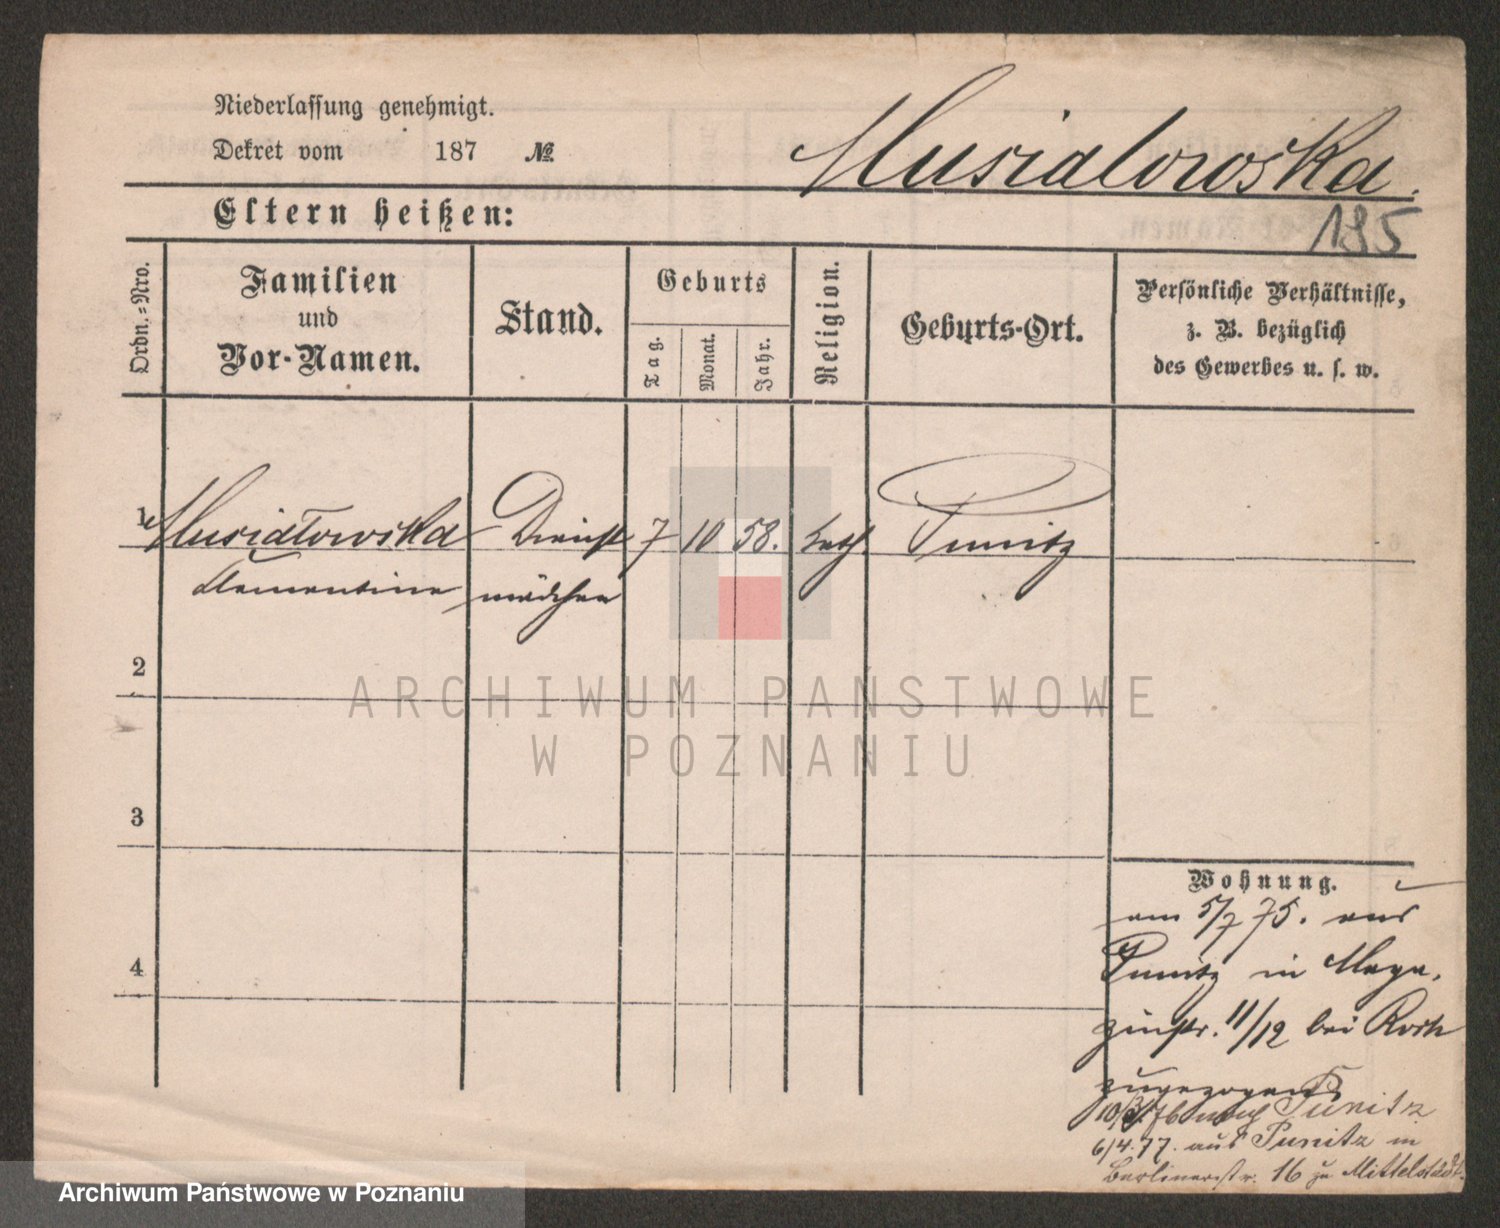 Niederlassung genehmigt.
Dekret vom 187 №
Musialowska.
185
Eltern heißen:
Ordn.-Nro.
Familien
und
Vor-Namen.
Stand.
Geburts
Tag.
Monat.
Jahr.
Religion.
Geburts-Ort.
Persönliche Verhältnisse,
z. B. bezüglich
des Gewerbes u. s. w.
1 Musiałowska Dienst 7 10 58. kath Punitz
Clementine mädchen
2
3
4
Wohnung.
am 5/7 75. aus
Punitz in Maga-
zinstr. 11/12 bei
zugezogen
10/3 76 nach Punitz
6/4.77. aus Punitz in
Berlinerstr. 16 zu Mittelstädt.
ARCHIWUM PAŃSTWOWE
W POZNANIU
Archiwum Państwowe w Poznaniu